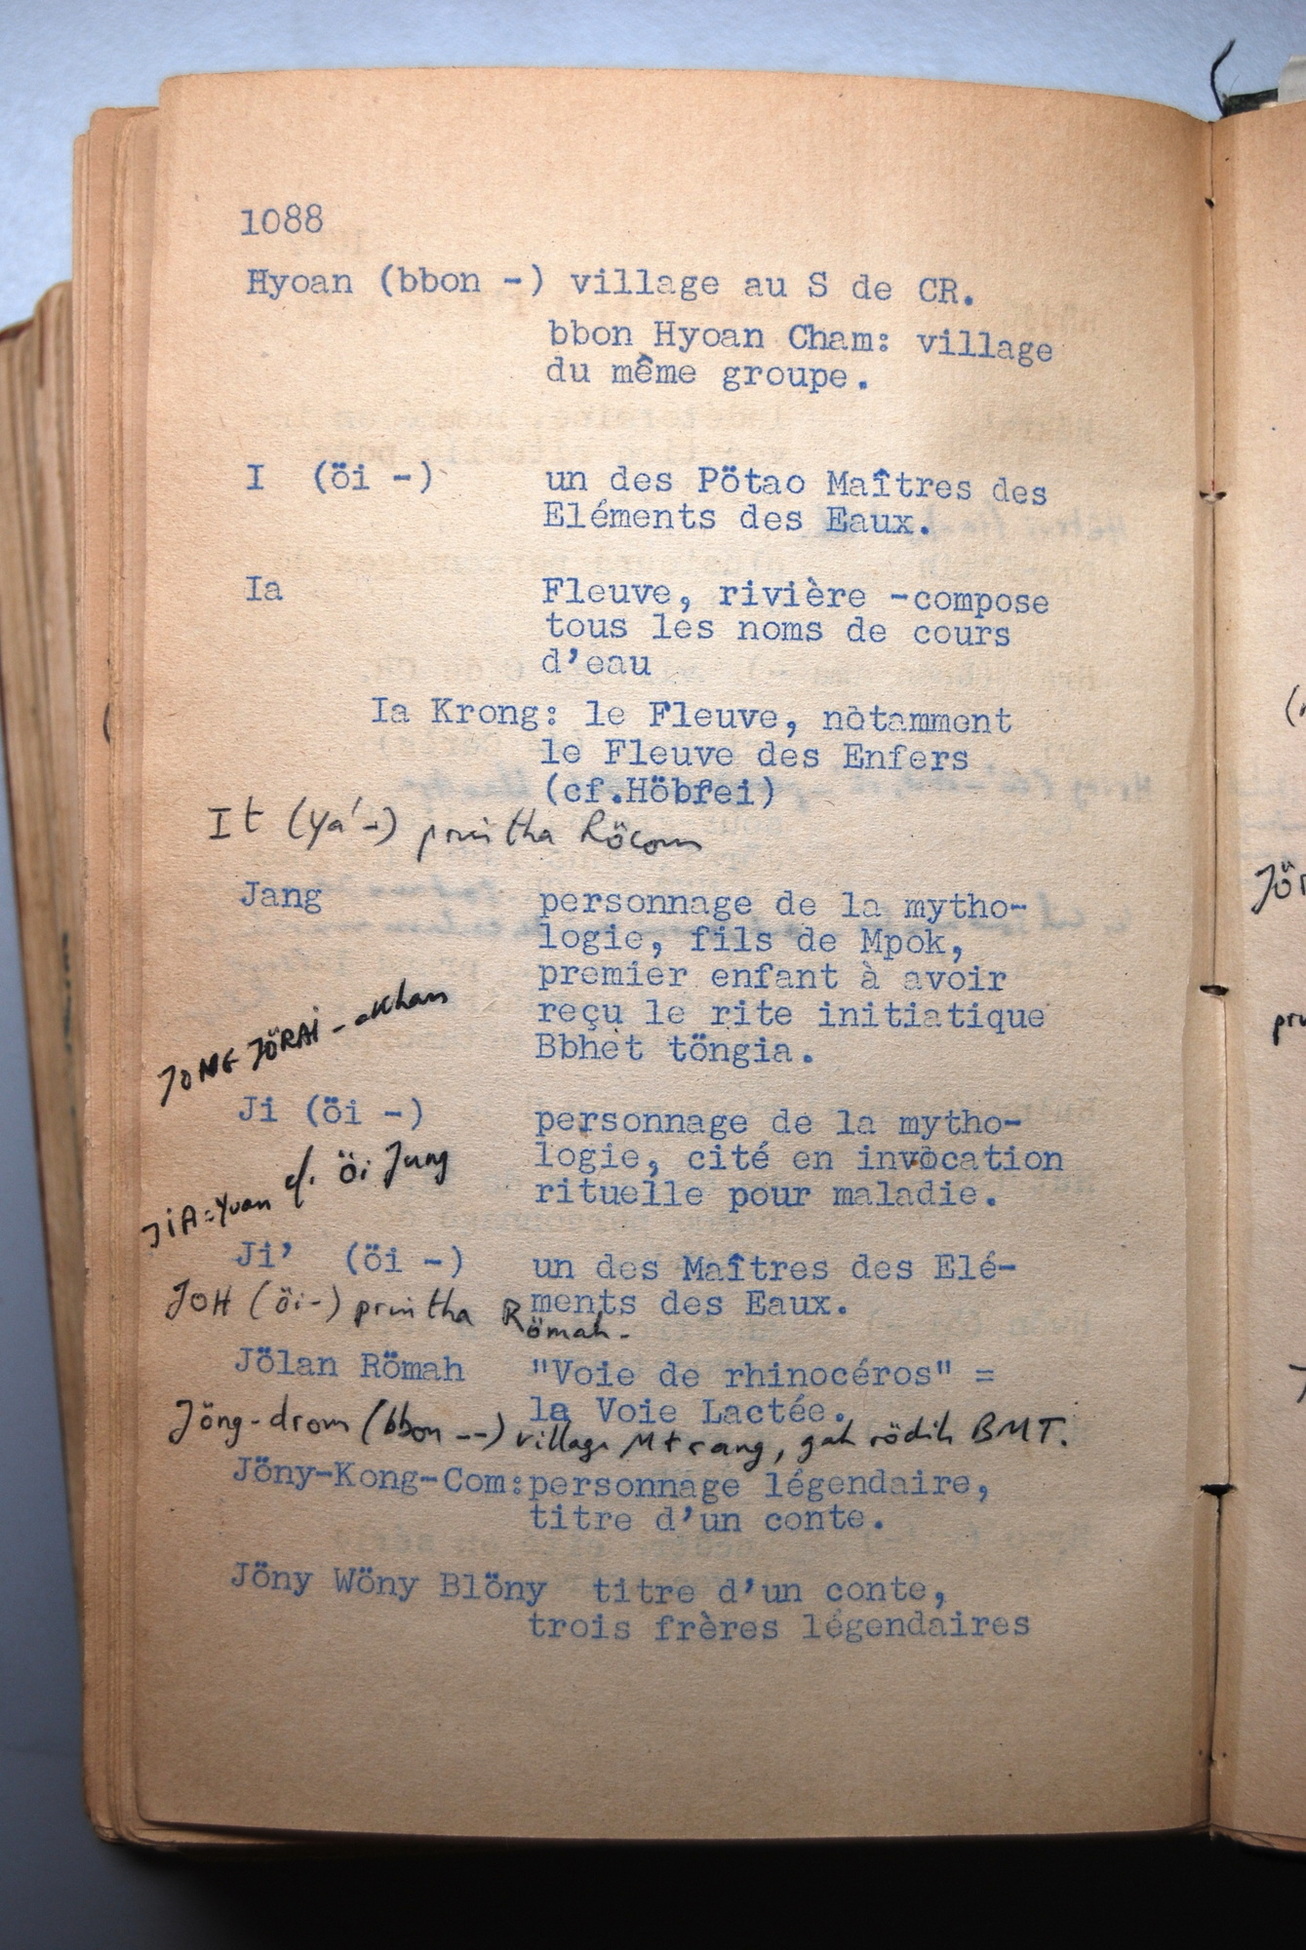 1088
Hyoan (bbon -) village au S de CR.
bbon Hyoan Cham: village
du même groupe.
I (öi -) un des Pötao Maîtres des
Eléments des Eaux.
Ia Fleuve, rivière -compose
tous les noms de cours
d'eau
Ia Krong: le Fleuve, notamment
le Fleuve des Enfers
(cf.Höbrei)
It (ya'-) prin tha Röcom
Jang personnage de la mytho-
logie, fils de Mpok,
premier enfant à avoir
reçu le rite initiatique
Bbhèt töngia.
JONG JÖRAI - Khan
Ji (öi -) personnage de la mytho-
logie, cité en invocation
rituelle pour maladie.
cf. öi Jung
JIA = Yuan
Ji' (öi -) un des Maîtres des Elé-
ments des Eaux.
JOH (öi-) prin tha Römah-
Jölan Römah "Voie de rhinocéros" =
la Voie Lactée.
Jöng-drom (bbon --) village Mtrang, gah rödih BMT.
Jöny-Kong-Com: personnage légendaire,
titre d'un conte.
Jöny Wöny Blöny titre d'un conte,
trois frères légendaires